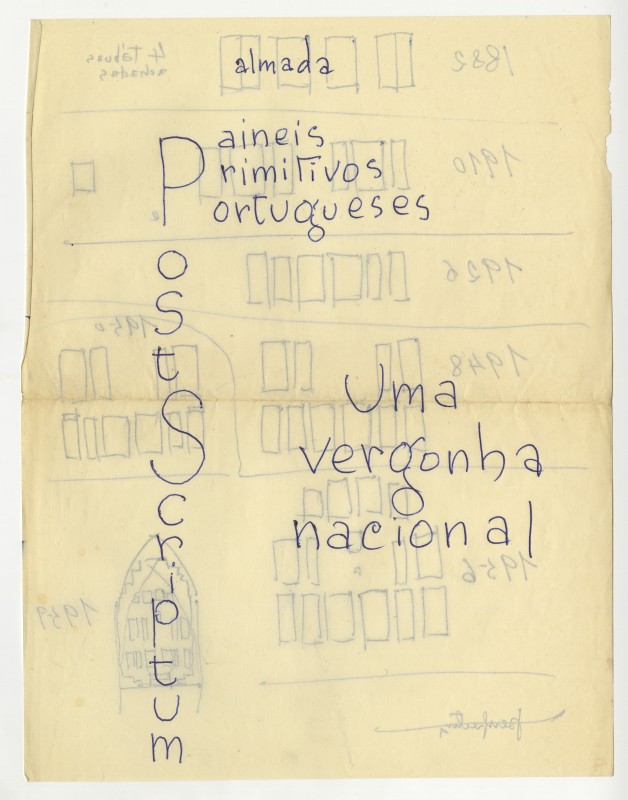 almada
Paineis
Primitivos
Portugueses
Post Scriptum
Uma
vergonha
nacional
1882
4 tábuas
achadas
1910
1926
1948
1950
1956